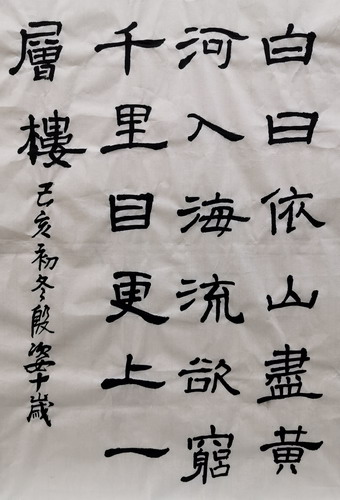 白日依山盡黄
河入海流欲窮
千里目更上一
層樓
己亥初冬殷姿十歲